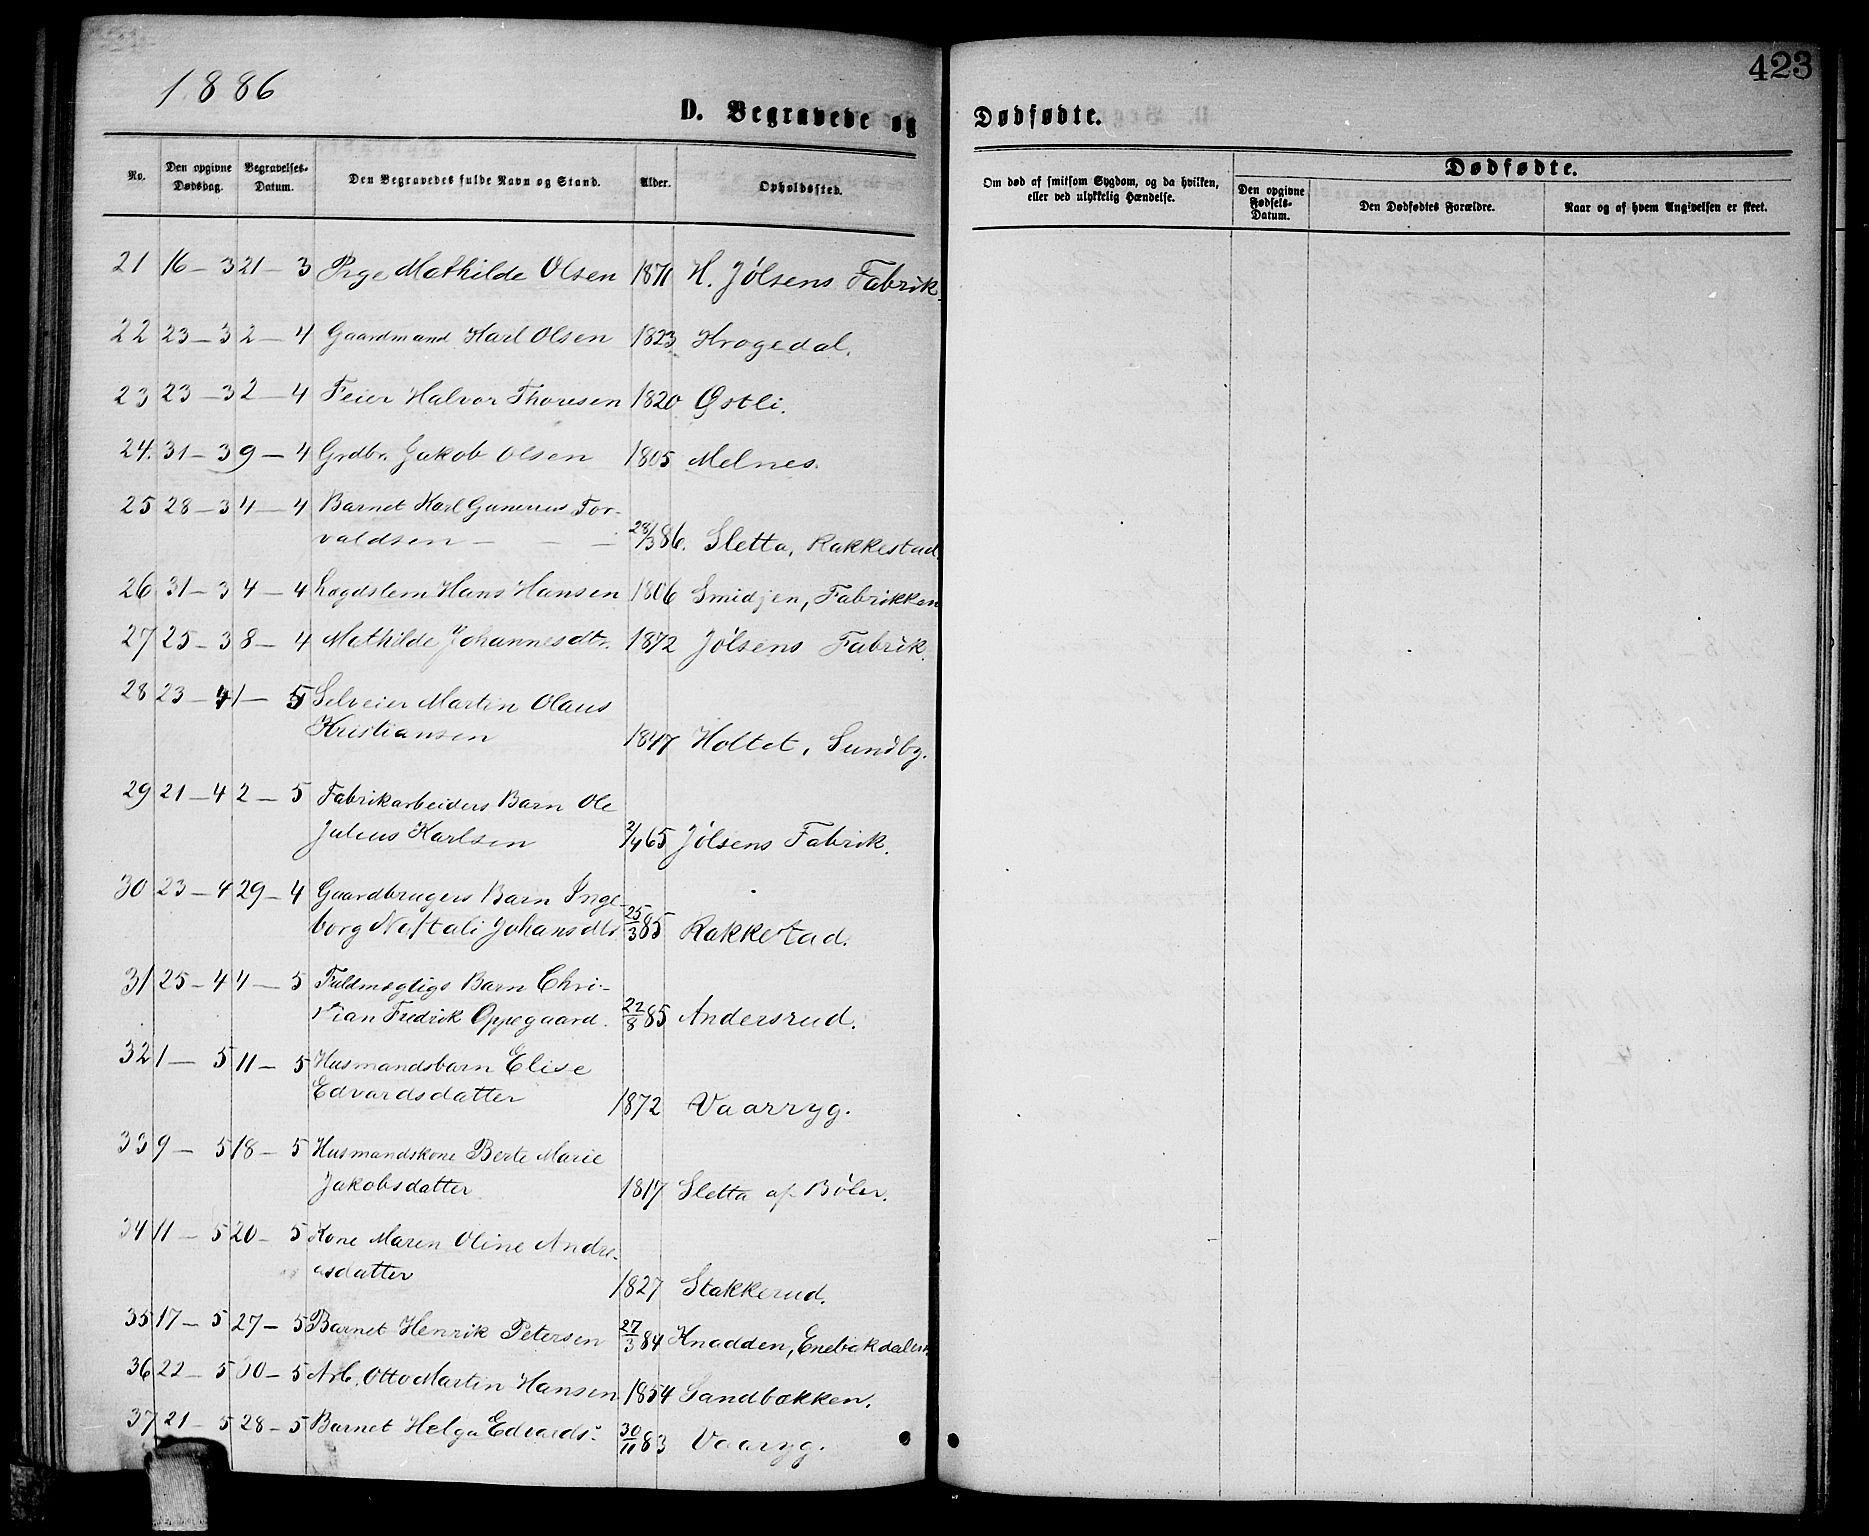 1886
423
D. Begravede og Dødfødte.
No. Den opgivne Dødsdag. Begravelses-Datum. Den Begravedes fulde Navn og Stand. Alder. Opholdssted.
Om død af smitsom Sygdom, og da hvilken, eller ved ulykkelig Hændelse.
Dødfødte.
Den opgivne Fødsels-Datum. Den Dødfødtes Forældre. Naar og af hvem Angivelsen er skeet.
21 16 – 3 21 – 3 Pige Mathilde Olsen 1871 H. Jølsens Fabrik.
22 23 – 3 2 – 4 Gaardmand Karl Olsen 1823 Krogedal.
23 23 – 3 2 – 4 Feier Halvor Thoresen 1820 Østli.
24. 31 – 3 9 – 4 Grdbr. Jakob Olsen 1805 Melnes.
25 28 – 3 4 – 4 Barnet Karl Gunerius Tor-
valdsen – – – 23/3 86. Sletta, Rakkestad
26 31 – 3 4 – 4 Lægdslem Hans Hansen 1806 Smidjen, Fabrikken
27 25 – 3 8 – 4 Mathilde Johannesdtr. 1872 Jølsens Fabrik.
28 23 – 4 1 – 5 Selveier Martin Olaus
Kristiansen 1847 Holtet, Sundby.
29 21 – 4 2 – 5 Fabrikarbeiders Barn Ole
Julius Karlsen 2/4 65 Jølsens Fabrik.
30 23 – 4 29 – 4 Gaardbrugers Barn Inge-
borg Neftali Johansdtr. 25/3 85 Rakkestad.
31 25 – 4 4 – 5 Fuldmægtigs Barn Chri-
stian Fredrik Oppegaard. 22/8 85 Andersrud.
32 1 – 5 11 – 5 Husmandsbarn Elise
Edvardsdatter 1872 Vaarryg.
33 9 – 5 18 – 5 Husmandskone Berte Marie
Jakobsdatter 1817 Sletta af Bøler.
34 11 – 5 20 – 5 Kone Maren Oline Andre-
asdatter 1827 Stakkerud.
35 17 – 5 27 – 5 Barnet Henrik Petersen 27/3 84 Knadden, Enebakdalen.
36 22 – 5 30 – 5 Arb. Otto Martin Hansen 1854 Sandbakken.
37 21 – 5 28 – 5 Barnet Helga Edvards. 30/11 83 Vaaryg.